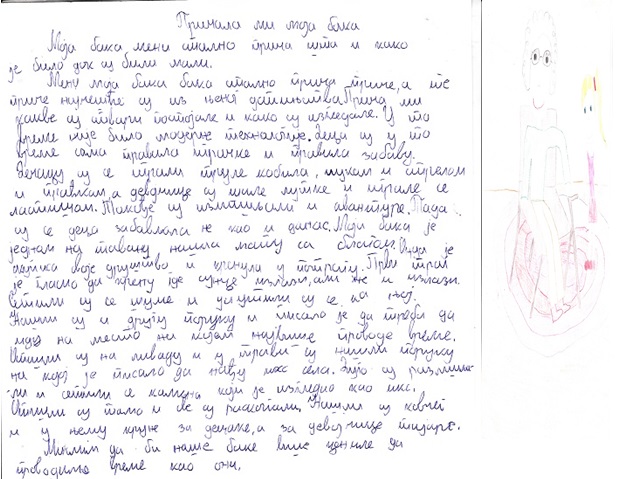 Причала ми моја бака
Моја бака мени стално прича шта и како
је било док су били мали.
Мени моја бака стално прича приче, а те
приче најчешће су из њеног детињства. Прича ми
какве су ствари постојале и како су изгледале. У то
време није било модерне технологије. Деца су у то
време сама правила играчке и правила забаву.
Дечаци су се играли труле кобила, луком и стрелом
и праћком, а девојчице су шиле лутке и играле се
ластишом. Такође су измишљали и авантуре. Тада
су се деца забављала не као и данас. Моја бака је
једном на тавану нашла мапу са благом. Онда је
својe друштво и кренули у потрагу. Први траг
је гласио да крену где сунце излази.
Сетили су се шуме и упутили су се ка њој.
Нашли су и другу поруку и писало је да треба да
иду на место на којем највише проводе време.
Отишли су на ливаду и у трави су нашли поруку
на којој је писало да нађу икс села. Дуго су размишља-
ли и сетили се камена који је изгледао као икс.
Отишли су тамо и све су раскопали. Нашли су ковчег
и у њему круне за дечаке, а за девојчице тијаре.
Мислим да би наше баке више желеле да
проводимо време као они.